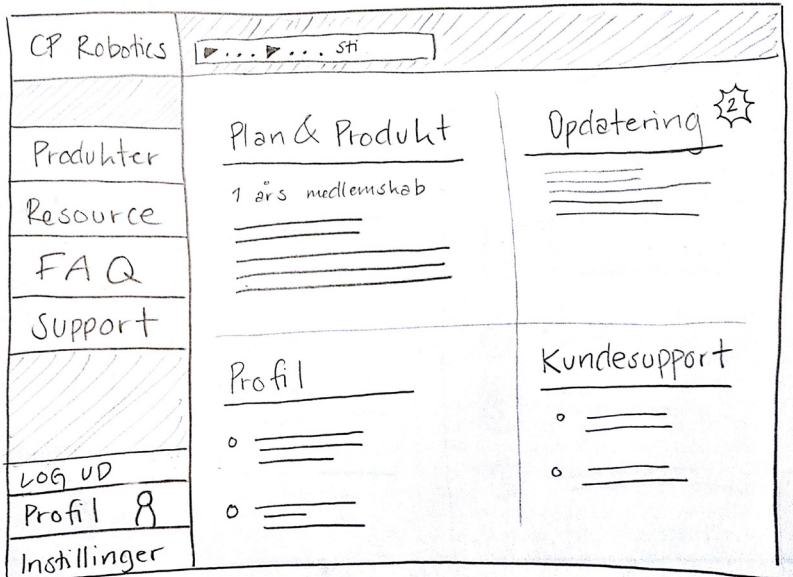 CP Robotics
... ... sti
Produkter
Resource
FAQ
Support
LOG UD
Profil
Instillinger
Plan & Produkt
1 års medlemskab
Opdatering 2
Profil
Kundesupport